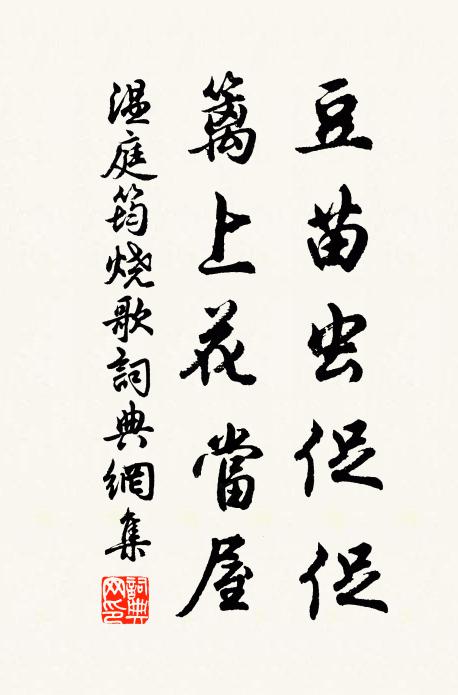 豆苗虫促促
籬上花當屋
温庭筠烧歌詞典網集
詞典網印